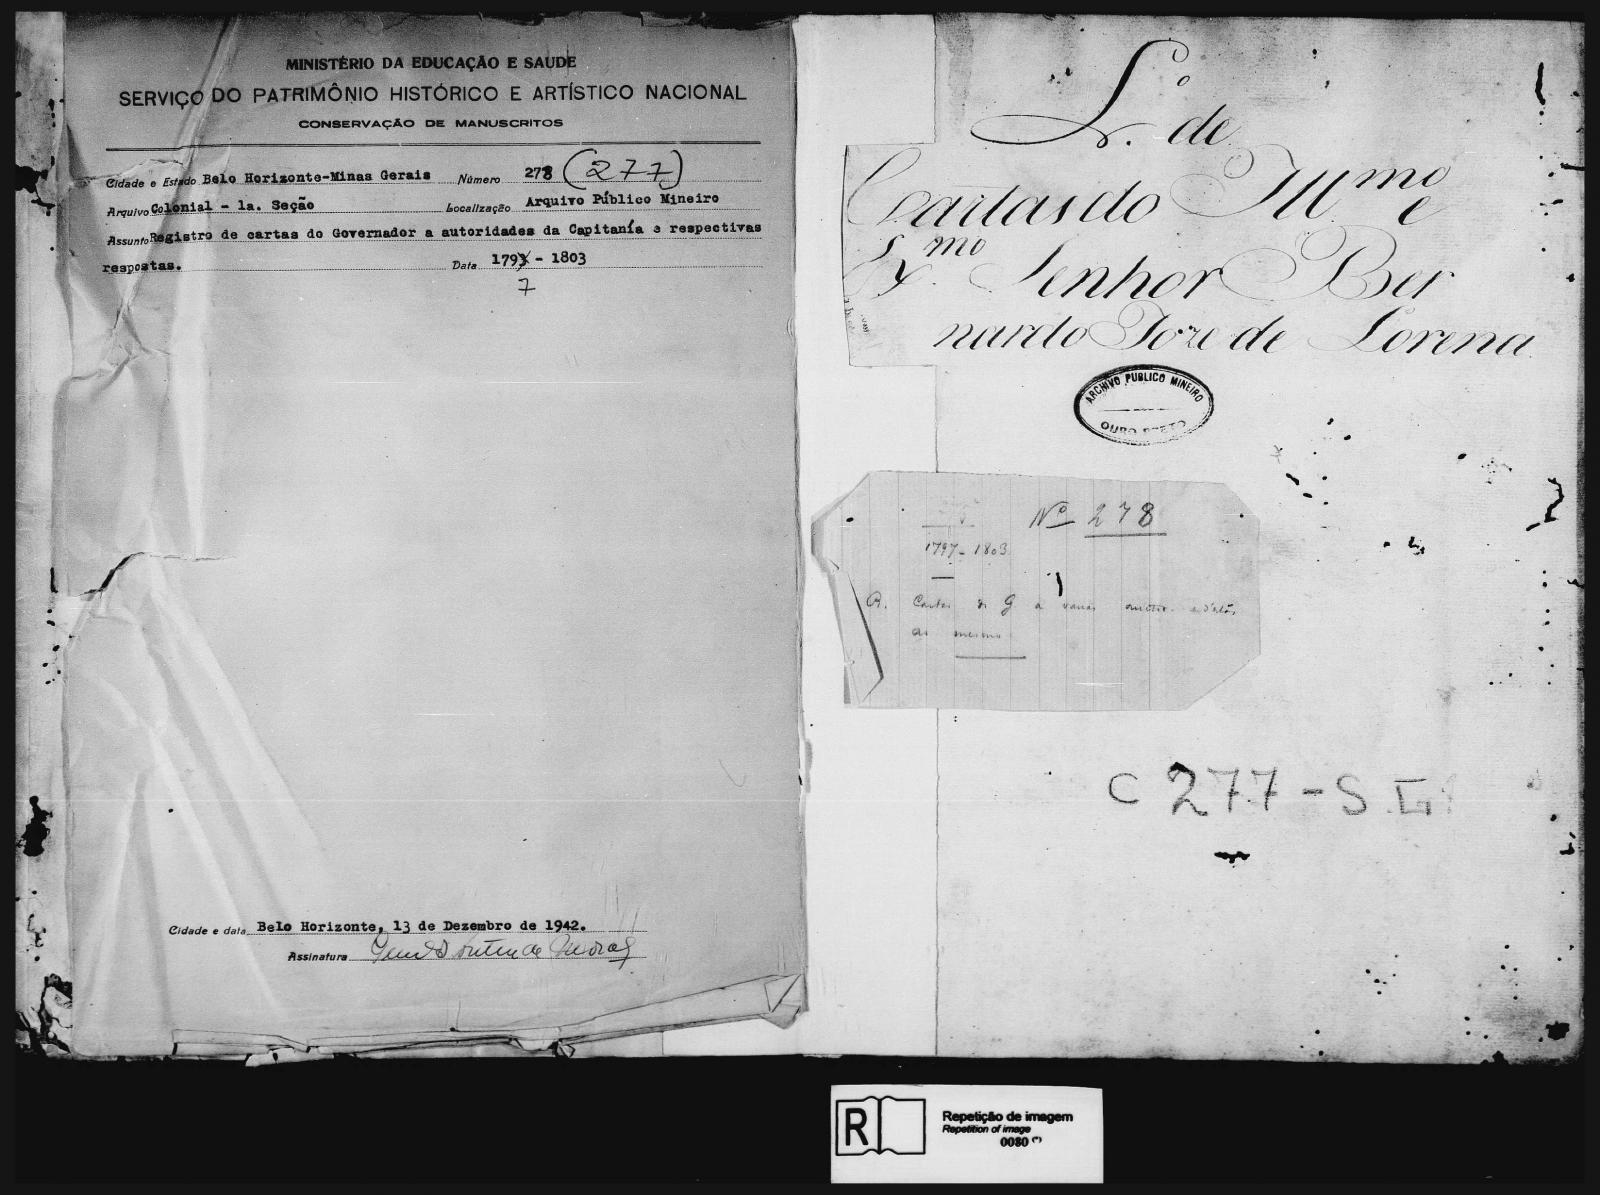 MINISTÉRIO DA EDUCAÇÃO E SAUDE
SERVIÇO DO PATRIMÔNIO HISTÓRICO E ARTÍSTICO NACIONAL
CONSERVAÇÃO DE MANUSCRITOS
Cidade e Estado Belo Horizonte-Minas Gerais Número 278 (277)
Arquivo Colonial - 1a. Seção Localização Arquivo Público Mineiro
Assunto Registro de cartas do Governador a autoridades da Capitanía e respectivas
respostas. Data 1793 - 1803
7
Cidade e data Belo Horizonte, 13 de Dezembro de 1942.
Assinatura
L.º de
Cartas do Illmo e
Exmo Senhor Ber
nardo Joze de Lorena
ARCHIVO PUBLICO MINEIRO
OURO PRETO
Nº 278
1797-1803
Cartas do G a varias
as mesmo
C 277-S.G.
R
Repetição de imagem
Repetition of image
0080 (*)